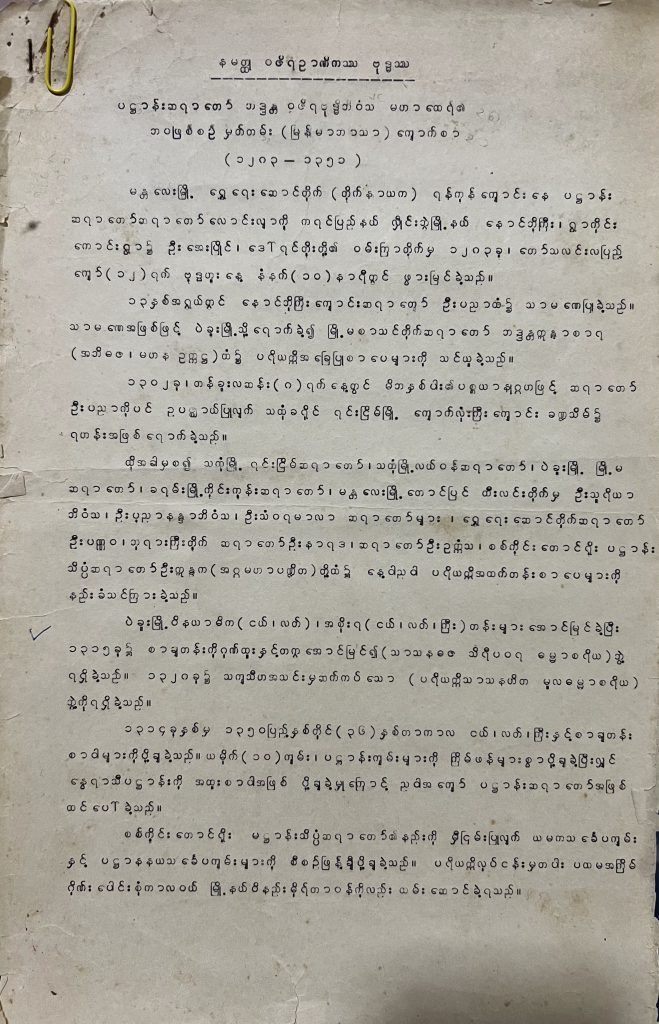 နမတ္ထု ဝဇီရဉာဏိကဿ ဗုဒ္ဓဿ
ပဋ္ဌာန်းဆရာတော် ဘဒ္ဒန္တ ဝဇီရဗုဒ္ဓိဘိဝံသ မဟာထေရ်၏
ဘဝဖြစ်စဉ် မှတ်တမ်း (မြန်မာဘာသာ) ကျောက်စာ
(၁၂၈၃ — ၁၃၅၁)
မန္တလေးမြို့ ရွှေရေးဆောင်တိုက် (တိုက်နာယက) ရန်ကုန်ကျောင်းနေ ပဋ္ဌာန်း
ဆရာတော်ဆရာတော်လောင်းလျာကို ကရင်ပြည်နယ် လှိုင်းဘွဲ့မြို့နယ် နောင်ဘိုကြီး၊ရွာကိုင်း
ကောင်းရွာ၌ ဦးအေးမြိုင်၊ ဒေါ်ရင်တိုးတို့၏ ဝမ်းကြာတိုက်မှ ၁၂၈၃ခု၊ တော်သလင်းလပြည့်
ကျော်(၁၂)ရက် ဗုဒ္ဓဟူးနေ့ နံနက်(၁၀)နာရီတွင် ဖွားမြင်ခဲ့သည်။
၁၃နှစ်အရွယ်တွင် နောင်ဘိုကြီးကျောင်းဆရာတော် ဦးပညာထံ၌ သာမဏေပြုခဲ့သည်။
သာမဏေအဖြစ်ဖြင့် ပဲခူးမြို့သို့ရောက်ခဲ့၍ မြို့မစာသင်တိုက်ဆရာတော် ဘဒ္ဒန္တဣန္ဒာစာရ
(အဘိဓဇ၊မဟန ဥက္ကဋ္ဌ)ထံ၌ ပရိယတ္တိအခြေပြုစာပေများကို သင်ယူခဲ့သည်။
၁၃၀၂ခု၊တန်ခူးလဆန်း(၈)ရက်နေ့တွင် မိဘနှစ်ပါး၏ပစ္စယာနုဂ္ဂဟဖြင့် ဆရာတော်
ဦးပညာကိုပင် ဥပဇ္ဈာယ်ပြုလျက် သထုံခရိုင် ရင်းငြိမ်မြို့ ကျောက်လုံးကြီးကျောင်း ခဏ္ဍသိမ်၌
ရဟန်းအဖြစ်ရောက်ခဲ့သည်။
ထိုအခါမှစ၍ သကုံမြို့ ရင်းငြိမ်ဆရာတော်၊သထုံမြို့လယ်ဝန်ဆရာတော်၊ပဲခူးမြို့ မြို့မ
ဆရာတော်၊ခရမ်းမြို့ကိုင်းကုန်းဆရာတော်၊မန္တလေးမြို့တောင်ပြင် ထီးလင်းတိုက်မှ ဦးသူရိယာ
ဘိဝံသ၊ဦးပုညာနန္ဒာဘိဝံသ၊ဦးသံဝရမာလာ ဆရာတော်များ၊ရွှေရေးဆောင်တိုက်ဆရာတော်
ဦးပဏ္ဍဝ၊ဘုရားကြီးတိုက် ဆရာတော်ဦးနာရဒ၊ဆရာတော်ဦးဥက္ကံသ၊စစ်ကိုင်းတောင်ရိုး ပဋ္ဌာန်း
သိပ္ပံဆရာတော်ဦးဣန္ဒက(အဂ္ဂမဟာပဏ္ဍိတ)တို့ထံ၌ နေ့ဝါညဝါ ပရိယတ္တိအထက်တန်းစာပေများကို
နည်းခံသင်ကြားခဲ့သည်။
ပဲခူးမြို့ဝိနယာဓိက(ငယ်၊လတ်)၊အစိုးရ(ငယ်၊လတ်၊ကြီး)တန်းများ အောင်မြင်ခဲ့ပြီး
၁၃၁၅ခု၌ စာချတန်းကိုဂုဏ်ထူးနှင့်တကွအောင်မြင်၍(သာသနဓဇ သိရီပဝရ ဓမ္မာစရိယ)ဘွဲ့
ရရှိခဲ့သည်။ ၁၃၂၈ခု၌ သကျသီဟအသင်းမှဆက်ကပ်သော (ပရိယတ္တိသာသနဟိတ မူလဓမ္မာစရိယ)
ဘွဲ့ကိုရရှိခဲ့သည်။
၁၃၁၄ခုနှစ်မှ ၁၃၅၀ပြည့်နှစ်တိုင်(၃၆)နှစ်တာကာလ ငယ်၊လတ်၊ကြီးနှင့်စာချတန်း
စာဝါများကိုပို့ချခဲ့သည်။ယမိုက်(၁၀)ကျမ်း၊ပဋ္ဌာန်းကျမ်းများကို ကြိမ်ဖန်များစွာပို့ချခဲ့ပြီးလျှင်
နွေရာသီပဋ္ဌာန်းကို အထူးစာဝါအဖြစ် ပို့ချခဲ့မှုကြောင့် ညဝါအကျော် ပဋ္ဌာန်းဆရာတော်အဖြစ်
ထင်ပေါ်ခဲ့သည်။
စစ်ကိုင်းတောင်ရိုး မဋ္ဌာန်းသိပ္ပံဆရာတော်၏နည်းကို မှီငြမ်းပြုလျက် ယမကသင်္ခေပကျမ်း
နှင့် ပဋ္ဌာနနယသင်္ခေပကျမ်းများကို စီစဉ်ဖြန့်ချီပို့ချခဲ့သည်။ ပရိယတ္တိလုပ်ငန်းမှတပါး ပထမအကြိမ်
ဂိုဏ်းပေါင်းစုံကာလဝယ် မြို့နယ်ဝိနည်းဓိုရ်တာဝန်ကိုလည်းထမ်းဆောင်ခဲ့ရသည်။